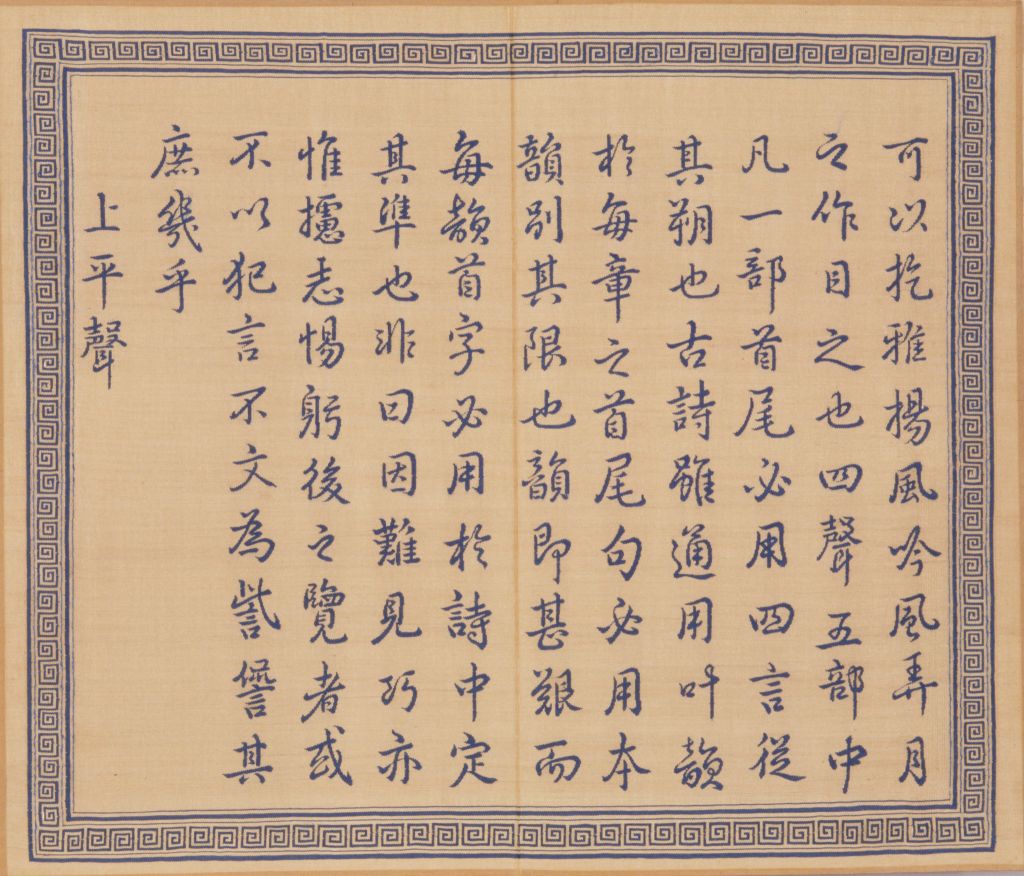 可以扢雅揚風吟風弄月
之作目之也四聲五部中
凡一部首尾必用四言從
其朔也古詩雖通用叶韻
於每章之首尾句必用本
韻別其限也韻即甚艱而
每韻首字必用於詩中定
其準也非曰因難見巧亦
惟攄志惕躬後之覽者或
不以犯言不文為訾譽其
庶幾乎
上平聲